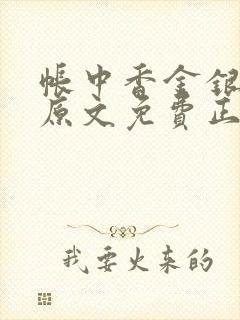 帐中香金银
原文免费正
我要火来的